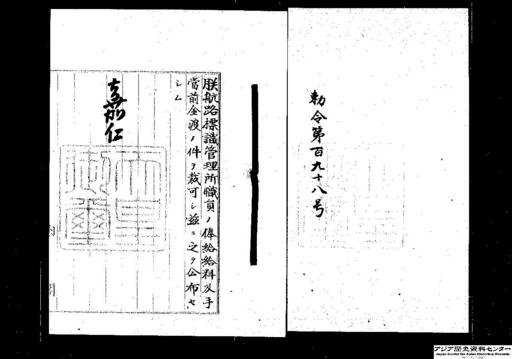 勅令第百九十八号
朕航路標識管理所職員ノ俸給給料及手
當前金渡ノ件ヲ裁可シ茲ニ之ヲ公布セ
シム
嘉仁
天皇
御璽
内
閣
アジア歴史資料センター
Japan Center for Asian Historical Records